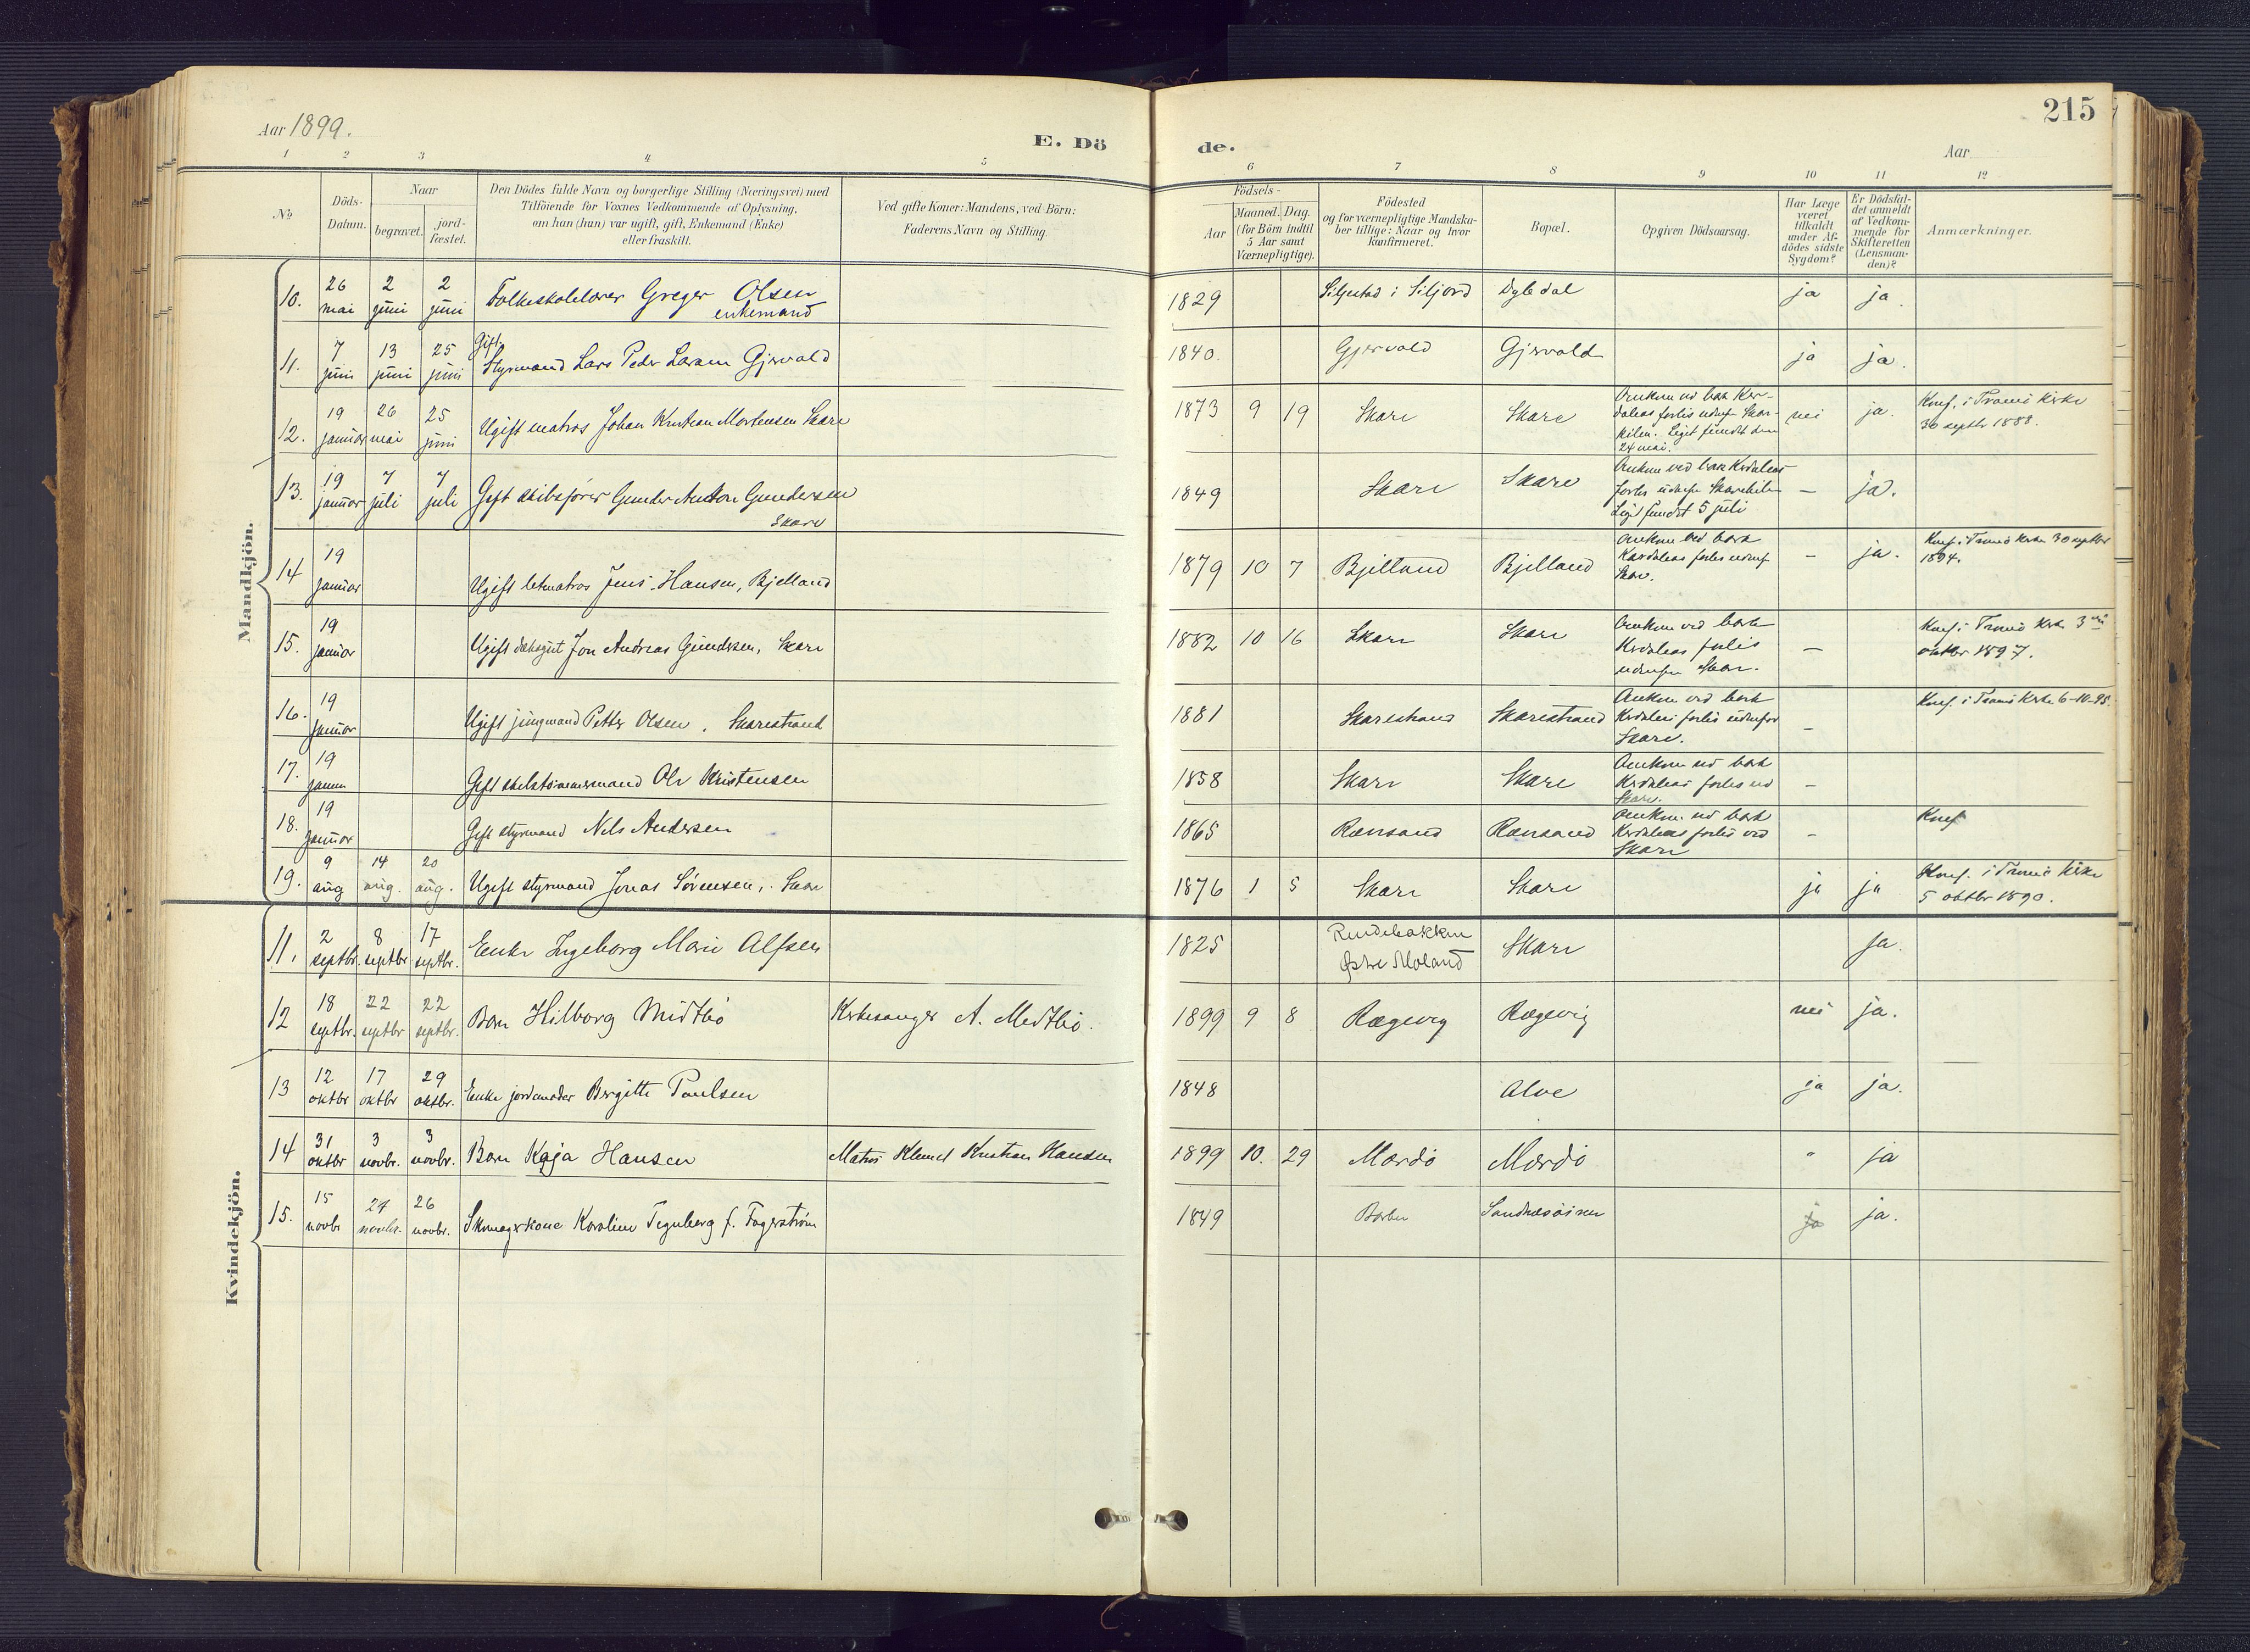 215
Aar 1899.
E. Dö
de.
Aar
1 2 3 4 5
6 7 8 9 10 11 12
No
Döds-
Datum.
Naar
begravet.
jord-
fæstet.
Den Dödes fulde Navn og borgerlige Stilling (Næringsvei) med
Tilföiende for Voxnes Vedkommende af Oplysning,
om han (hun) var ugift, gift, Enkemand (Enke)
eller fraskilt.
Ved gifte Koner: Mandens, ved Börn:
Faderens Navn og Stilling.
Födsels-
Aar
Maaned. Dag.
(for Börn indtil
5 Aar samt
Værnepligtige).
Födested
og for værnepligtige Mandska-
ber tillige: Naar og hvor
konfirmeret.
Bopæl.
Opgiven Dödsaarsag.
Har Læge
været
tilkaldt
under Af-
dödes sidste
Sygdom?
Er Dödsfal-
det anmeldt
af Vedkom-
mende for
Skifteretten
(Lensman-
den)?
Anmærkninger.
Mandkjön.
10. 26 mai 2 juni 2 juni Folkeskolelærer Greger Olsen enkemand 1829 Siljestad i Siljord Dybedal ja ja.
11. 7 juni 13 juni 25 juni Gift Styrmand Lars Peder Larsen Gjervold 1840. Gjervold Gjervold ja ja.
12. 19 januar 26 mai 25 juni Ugift matros Johan Kristian Mortensen Skare 1873 9 19 Skare Skare Omkom ved bark Kor-
daleas forlis udenf Skare-
kilen. Liget fundet den
24 mai. nei ja. Konf. i Tromö Kirke
30 septbr 1888.
13. 19 januar 7 juli 7 juli Gift skibsfører Gunder Anton Gundersen
Skare 1849 Skare Skare Omkom ved bark Kordaleas
forlis udenfor Skarekilen
Liget fundet 5 juli – ja.
14 19 januar Ugift letmatros Jens Hansen, Bjelland 1879 10 7 Bjelland Bjelland Omkom ved bark
Kordaleas forlis udenf
Skare. – ja. Konf. i Tromö Kirke 30 septbr
1894.
15. 19 januar Ugift dæksgut Jon Andreas Gundersen, Skare 1882 10 16 Skare Skare Omkom ved bark
Kordaleas forlis
udenfor Skare. – Konf. i Tromö Kirke 3
oktbr 1897.
16. 19 januar Ugift jungmand Petter Olsen, Skarestrand 1881 Skarestrand Skarestrand Omkom ved bark
Kordaleas forlis udenfor
Skare. – Konf. i Tromö Kirke 6-10-95.
17. 19 Gift skibstømmermand Ole Kristensen 1858 Skare Skare Omkom ved bark
Kordaleas forlis ved
Skare. –
18. 19 januar Gift styrmand Nils Andersen 1865 Rænsand Rænsand Omkom ved bark
Kordaleas forlis ved
Skare – Konf
19. 9 aug 14 aug. 20 aug. Ugift styrmand Jonas Sörensen, Skare 1876 1 5 Skare Skare ja ja Konf. i Tromö Kirke
5 oktbr 1890.
Kvindekjön.
11. 2 septbr. 8 septbr 17 septbr. Enke Ingeborg Marie Alfsen 1825 Rundebakken
Østre Moland Skare ja.
12 18 septbr. 22 septbr 22 septbr. Barn Hilborg Midtbö Kirkesanger A. Midtbö. 1899 9 8 Rægevig Rægevig nei ja.
13 12 oktbr 17 oktbr 29 oktbr. Enke jordemoder Bergitte Poulsen 1848 Alve ja ja.
14 31 oktbr 3 novbr. 3 novbr. Barn Kaja Hansen Matros Klemet Kristian Hansen 1899 10. 29 Mærdö Mærdö " ja
15. 15 novbr 24 novbr. 26 novbr. Skomagerkone Karoline Tegnberg f. Fagerström 1849 Barbu ja ja.